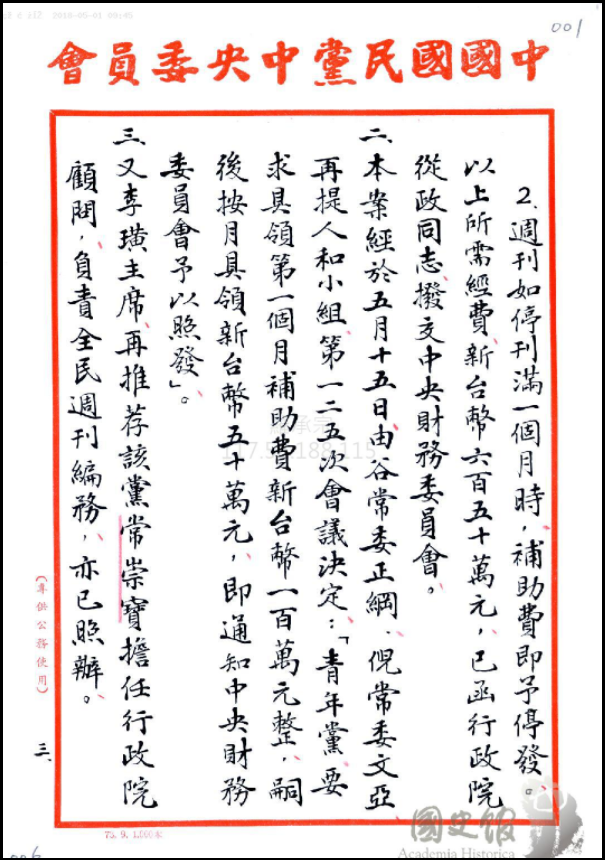 001
中國國民黨中央委員會
2.週刊如停刊滿一個月時，補助費即予停發。
以上所需經費、新台幣六百五十萬元，已函行政院
從政同志撥交中央財務委員會。
二、本案經於五月十五日由谷常委正綱、倪常委文亞
再提人和小組第一二五次會議決定：「青年黨要
求具領第一個月補助費新台幣一百萬元整，嗣
後按月具領新台幣五十萬元，即通知中央財務
委員會予以照發」。
三、又李璜主席、再推荐該黨常崇寶擔任行政院
顧問，負責全民週刊編務，亦已照辦。
（專供公務使用）
三、
75.9.1,000本
國史館
Academia Historica